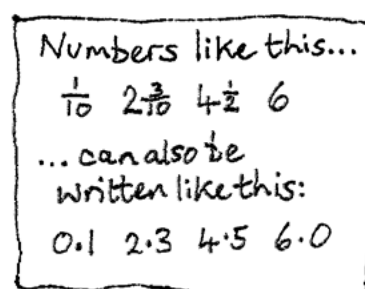 Numbers like this...
1/10 2 3/10 4 1/2 6
... can also be
written like this:
0·1 2·3 4·5 6·0